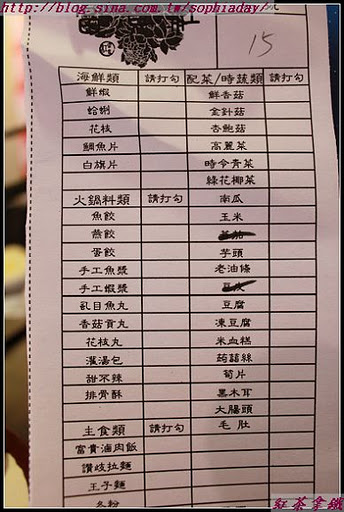 http://blog.sina.com.tw/sophiaday/
15
海鮮類 請打勾 配菜/時蔬類 請打勾
鮮蝦 鮮香菇
蛤蜊 金針菇
花枝 杏鮑菇
鯛魚片 高麗菜
白旗片 時令青菜
綠花椰菜
火鍋料類 請打勾 南瓜
魚餃 玉米
燕餃
蛋餃 芋頭
手工魚漿 老油條
手工蝦漿
虱目魚丸 豆腐
香菇貢丸 凍豆腐
花枝丸 米血糕
灌湯包 蒟蒻絲
甜不辣 筍片
排骨酥 黑木耳
大腸頭
主食類 請打勾 毛肚
富貴滷肉飯
讚歧拉麵
王子麵
冬粉
紅茶拿鐵